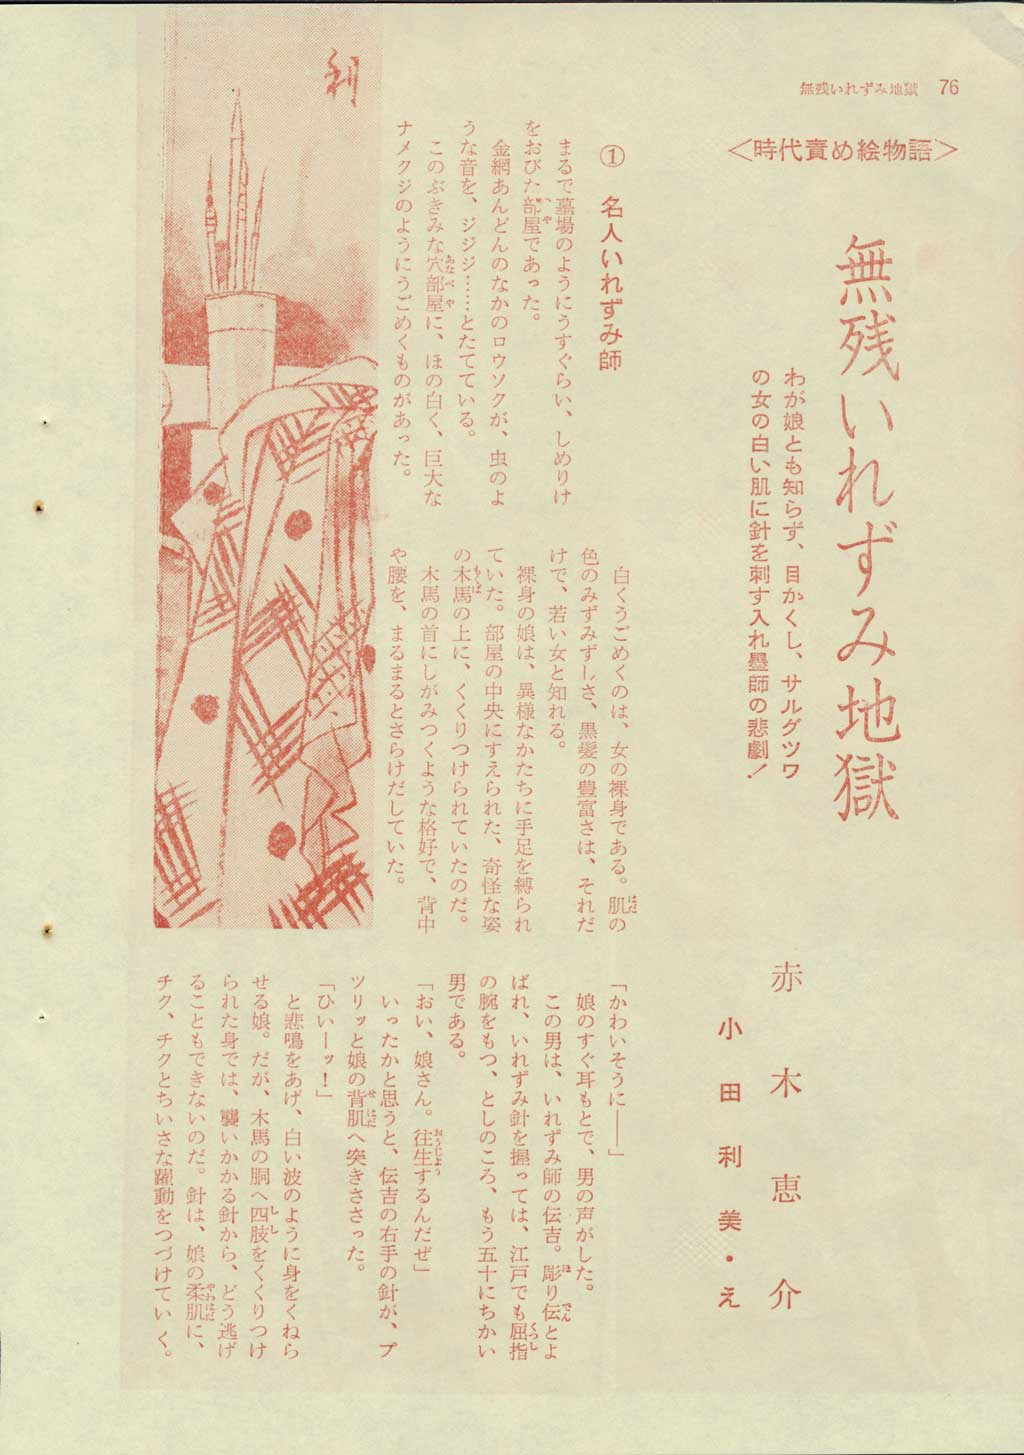 無残いれずみ地獄 76
＜時代責め絵物語＞
無残いれずみ地獄
わが娘とも知らず、目かくし、サルグツワ
の女の白い肌に針を刺す入れ墨師の悲劇！
赤木恵介
小田利美・え
① 名人いれずみ師
まるで墓場のようにうすぐらい、しめりけ
をおびた部屋であった。
金網あんどんのなかのロウソクが、虫のよ
うな音を、ジジジ……とたてている。
このぶきみな穴部屋に、ほの白く、巨大な
ナメクジのようにうごめくものがあった。
白くうごめくのは、女の裸身である。肌の
色のみずみずしさ、黒髪の豊富さは、それだ
けで、若い女と知れる。
裸身の娘は、異様なかたちに手足を縛られ
ていた。部屋の中央にすえられた、奇怪な姿
の木馬の上に、くくりつけられていたのだ。
木馬の首にしがみつくような格好で、背中
や腰を、まるまるとさらけだしていた。
「かわいそうに――」
娘のすぐ耳もとで、男の声がした。
この男は、いれずみ師の伝吉。彫り伝とよ
ばれ、いれずみ針を握っては、江戸でも屈指
の腕をもつ、としのころ、もう五十にちかい
男である。
「おい、娘さん。往生するんだぜ」
いったかと思うと、伝吉の右手の針が、プ
ツリッと娘の背肌へ突きささった。
「ひいーッ！」
と悲鳴をあげ、白い波のように身をくねら
せる娘。だが、木馬の胴へ四肢をくくりつけ
られた身では、襲いかかる針から、どう逃げ
ることもできないのだ。針は、娘の柔肌に、
チク、チクとちいさな躍動をつづけていく。
利